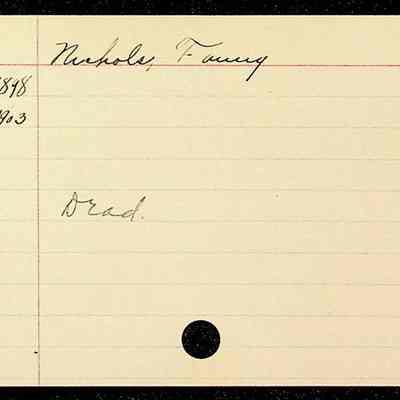 Nichols, Fanny
1898
1903
Dead.